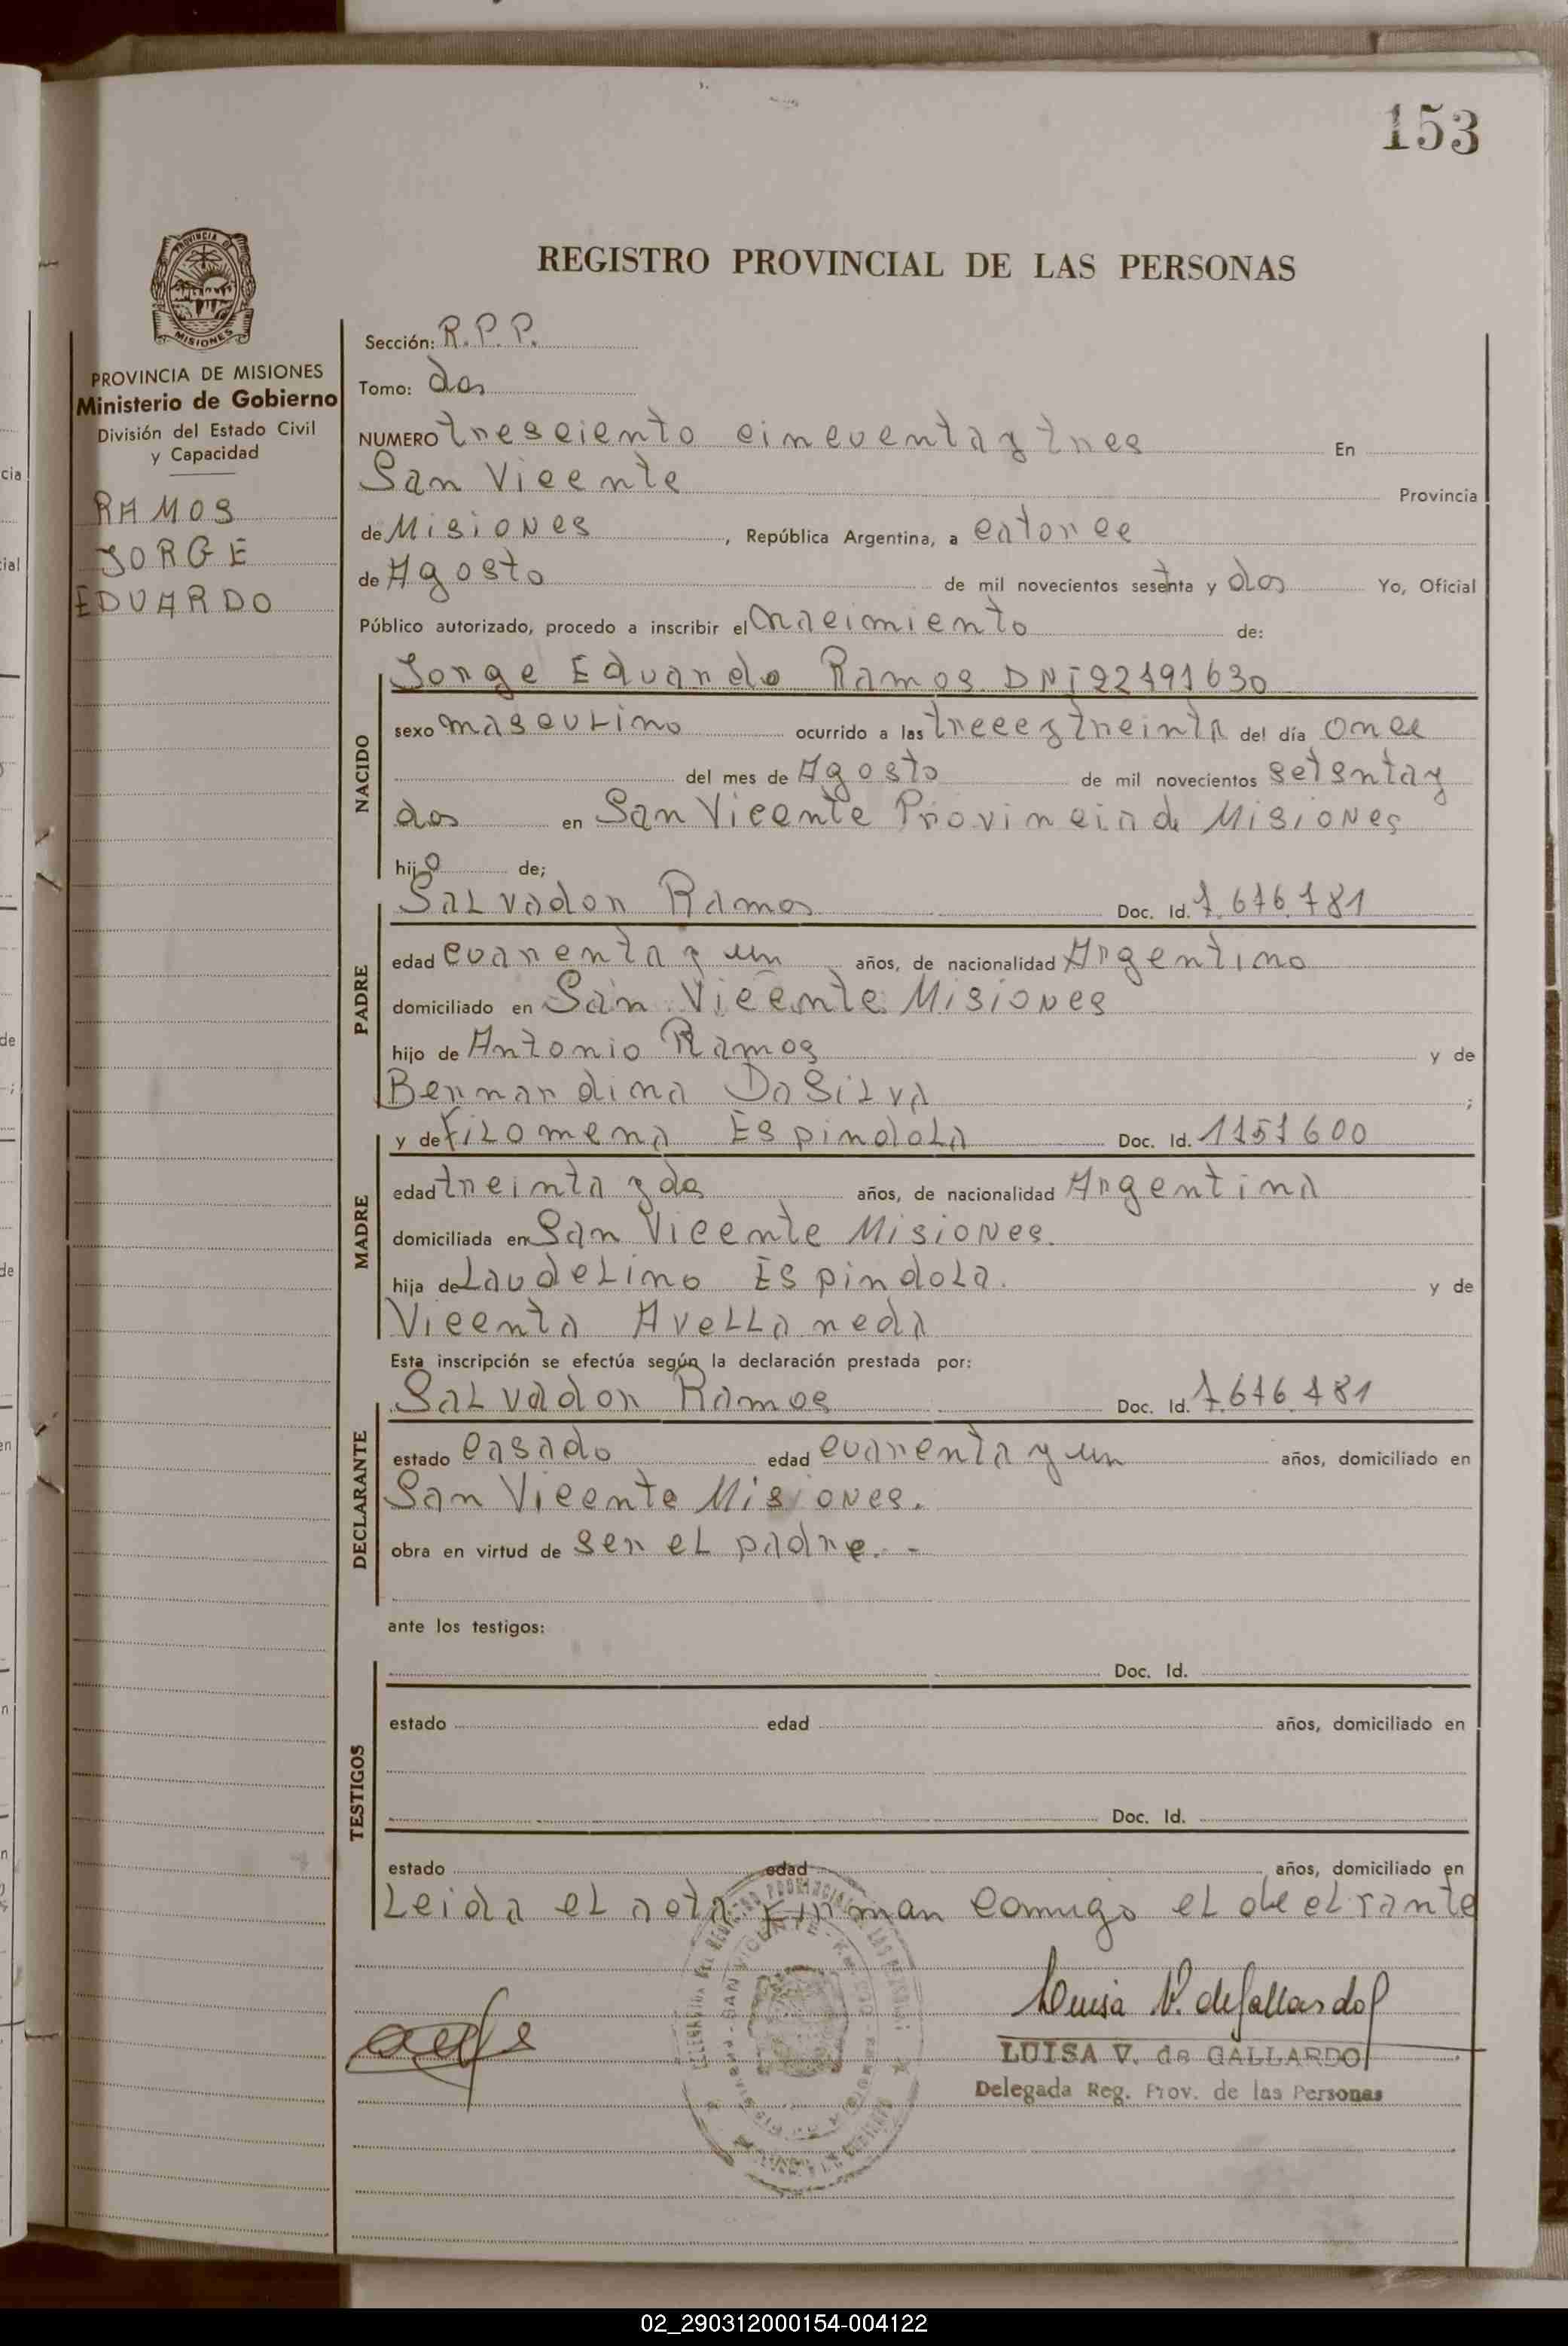 153
REGISTRO PROVINCIAL DE LAS PERSONAS
MISIONES
PROVINCIA DE MISIONES
Ministerio de Gobierno
División del Estado Civil
y Capacidad
RAMOS
JORGE
EDUARDO
Sección: R.P.P.
Tomo: dos
NUMERO tresciento cincuenta y tres En
San Vicente Provincia
de Misiones, República Argentina, a catorce
de Agosto de mil novecientos setenta y dos Yo, Oficial
Público autorizado, procedo a inscribir el nacimiento de:
NACIDO
Jorge Eduardo Ramos DNI 22491630
sexo masculino ocurrido a las trece y treinta del día once
del mes de Agosto de mil novecientos setenta y
dos en San Vicente Provincia de Misiones
hijo de;
PADRE
Salvador Ramos Doc. Id. 7.676.781
edad cuarenta y un años, de nacionalidad Argentino
domiciliado en San Vicente Misiones
hijo de Antonio Ramos y de
Bernardina Da Silva ;
MADRE
y de Filomena Espindola Doc. Id. 1151600
edad treinta y dos años, de nacionalidad Argentina
domiciliada en San Vicente Misiones.
hija de Laudelino Espindola. y de
Vicenta Avellaneda
Esta inscripción se efectúa según la declaración prestada por:
DECLARANTE
Salvador Ramos Doc. Id. 7.676.781
estado casado edad cuarenta y un años, domiciliado en
San Vicente Misiones.
obra en virtud de ser el padre. -
ante los testigos:
TESTIGOS
Doc. Id.
estado edad años, domiciliado en
Doc. Id.
estado edad años, domiciliado en
Leida el acta Firman comigo el declrante
Luisa V. de Gallardo
LUISA V. de GALLARDO
Delegada Reg. Prov. de las Personas
02_290312000154-004122